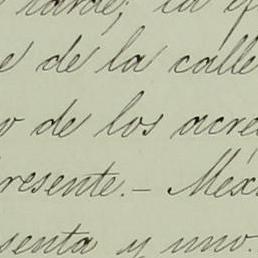 tarde; la q
e de la calle
o de los acre
resente.- Méx
senta y uno.